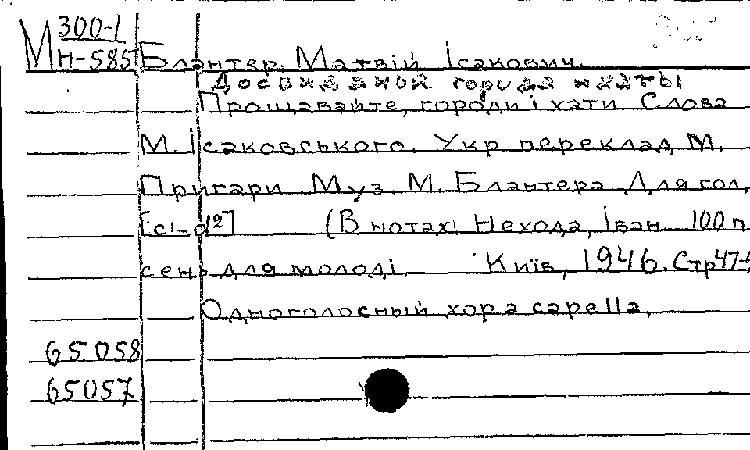 М 300-1
Н-585
Блантер, Матвій Ісакович.
До свиданья города и хаты
Прощавайте, городи і хати Слова
М. Ісаковського. Укр переклад М.
Пригари Муз. М. Блантера Для гол.
[c1-d2] (В нотах: Нехода, Іван 100 п
сень для молоді. Київ, 1946. Стр 47-
Одноголосный хор a capella.
65058
65057